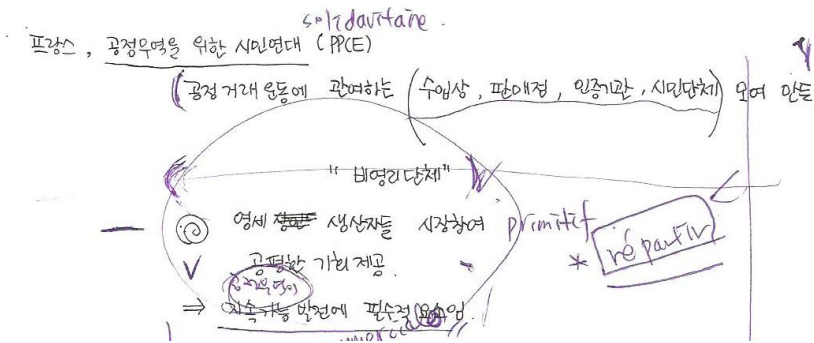 solidaritaire.
프랑스, 공정무역을 위한 시민연대 (PPCE)
(공정거래운동에 관여하는 (수입상, 판매점, 인증기관, 시민단체) 모여 만든
" 비영리단체"
영세 생산자들 시장참여 primitif
공평한 기회제공. * répartir
공정무역이
⇒ 지속가능 발전에 필수적 요소임.